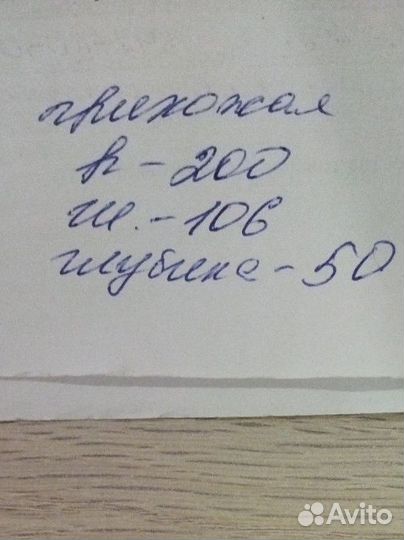 прихожая
h-200
ш.-106
глубина-50
Avito